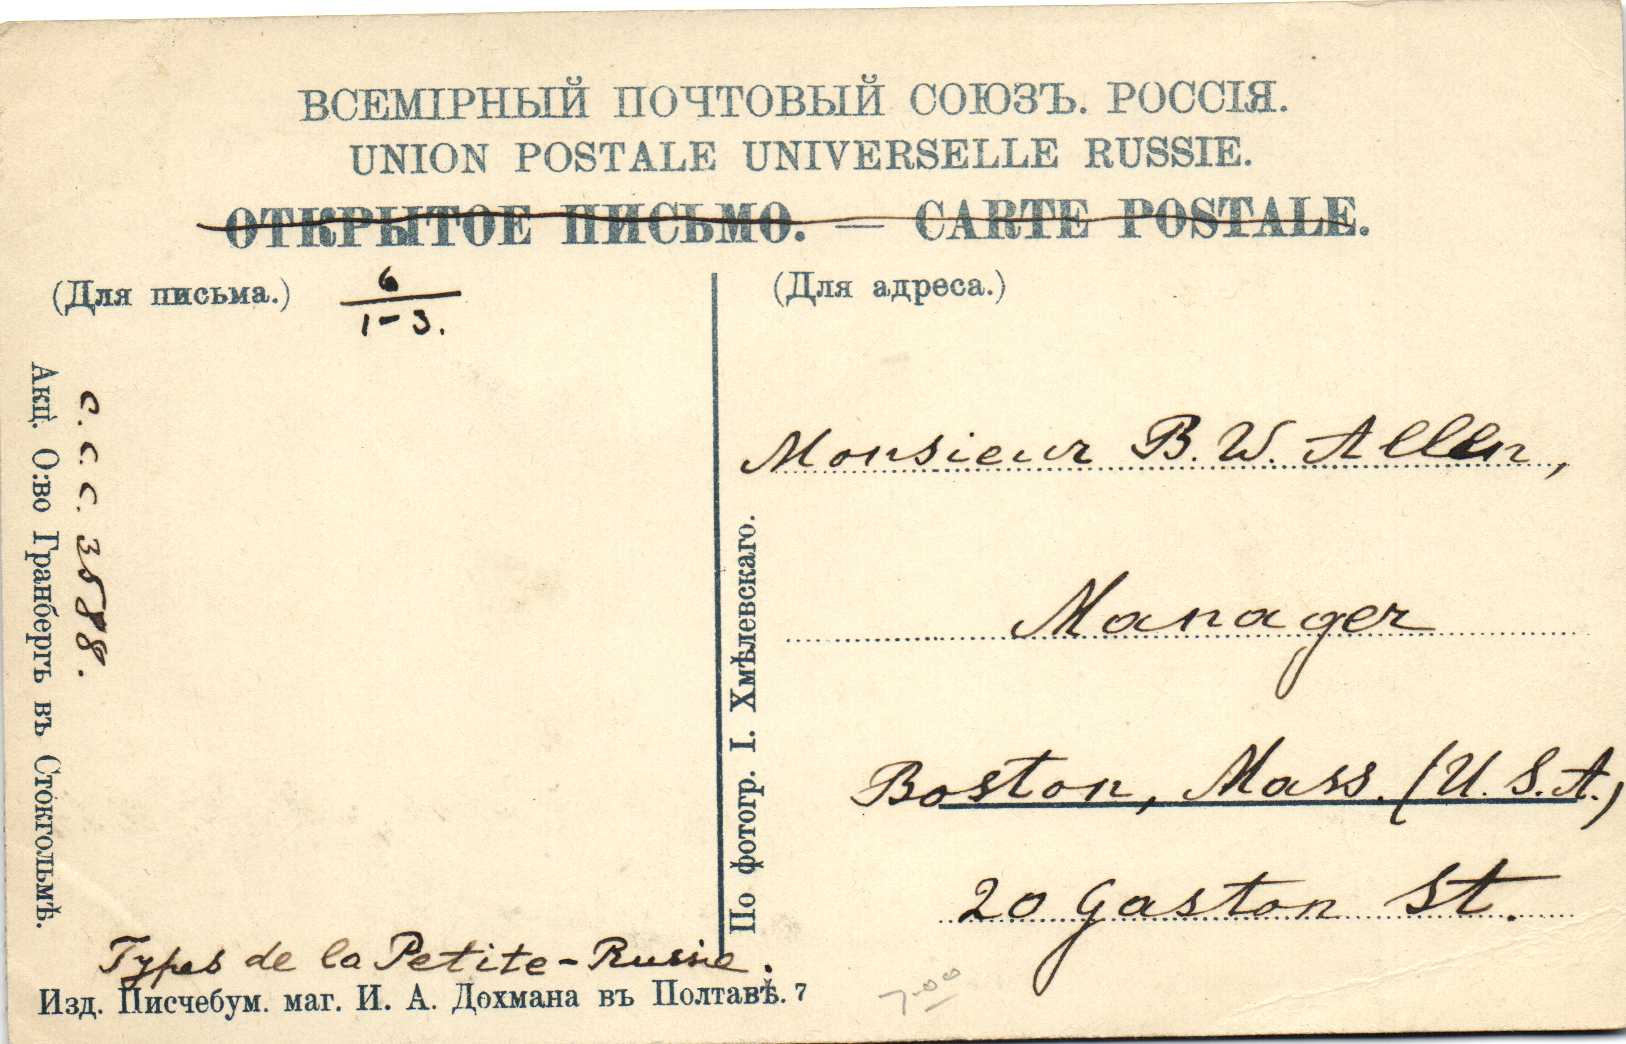 ВСЕМІРНЫЙ ПОЧТОВЫЙ СОЮЗЪ. РОССІЯ.
UNION POSTALE UNIVERSELLE RUSSIE.
ОТКРЫТОЕ ПИСЬМО. — CARTE POSTALE.
(Для письма.)
6
1-3.
(Для адреса.)
Акц. О:во Гранбергъ въ Стокгольмѣ.
C.C.C. 3588.
По фотогр. І. Хмѣлевскаго.
Monsieur B. W. Allen,
Manager
Boston, Mass. (U.S.A.)
20 Gaston St.
Types de la Petite-Russie.
Изд. Писчебум. маг. И. А. Дохмана въ Полтавѣ. 7
7.00